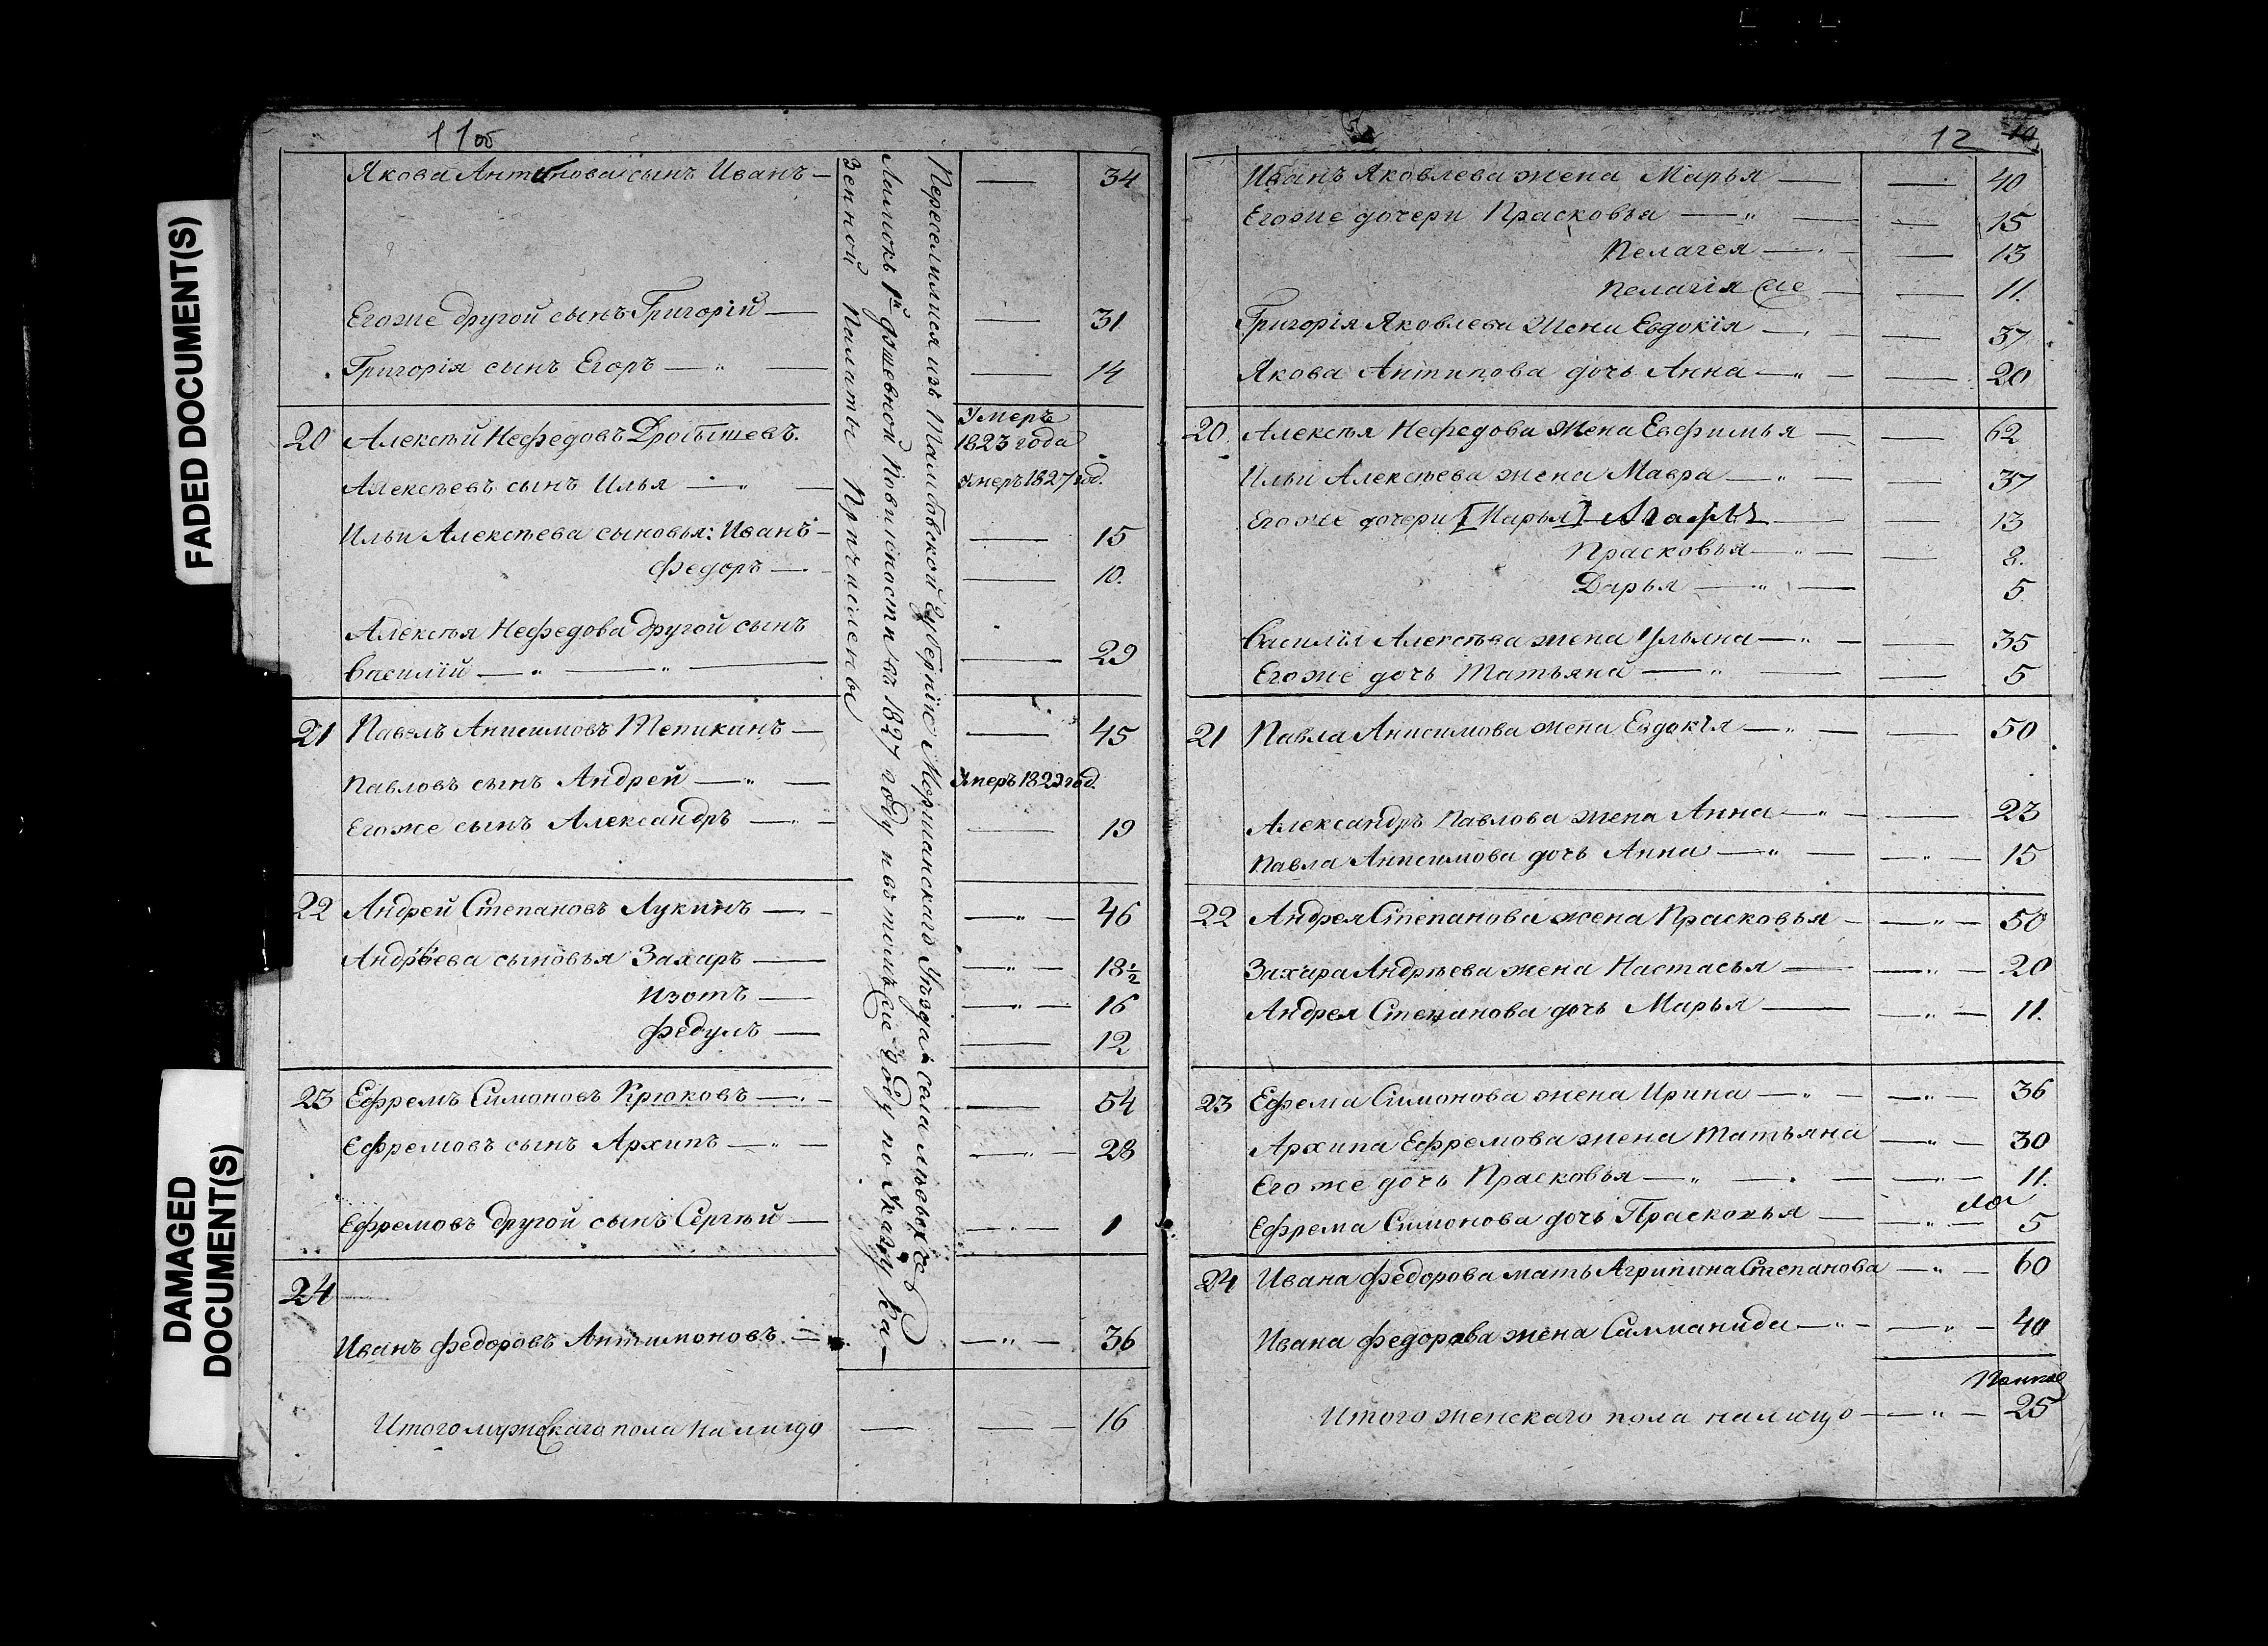 FADED DOCUMENT(S)
DAMAGED
DOCUMENT(S)
11об
Якова Антипова сынъ Иванъ — — 34
Егоже другой сынъ Григорій — — 31
Григорія сынъ Егоръ — — 14
20 Алексѣй Нефедовъ Дробышевъ. Умеръ
1823 года
Алексѣевъ сынъ Илья — Умеръ 1827 год.
Ильи Алексѣева сыновья: Иванъ — — 15
Федоръ — — 10.
Алексѣя Нефедова другой сынъ
Василій — — 29
21 Павелъ Анисимовъ Тепикинъ — — 45
Павловъ сынъ Андрей — Умеръ 1829 год.
Егоже сынъ Александръ — — 19
22 Андрей Степановъ Лукинъ — — 46
Андрѣева сыновья Захаръ — — 18½
Изотъ — — 16
Федулъ — — 12
23 Ефремъ Симоновъ Крюковъ — — 54
Ефремовъ сынъ Архипъ — — 28
Ефремовъ другой сынъ Сергѣй — — 1
24
Иванъ Федоровъ Антимоновъ. — — 36
Итого мужескаго пола на лицо — — 16
Переселились изъ Тамбовской Губерніи Моршанскаго Уѣзда села
къ 1827 году и въ томъ же году по Указу Ка-
зенной Палаты Причислены
12 10
Иванъ Яковлева жена Марья — — 40
Егоже дочери Прасковья — — 15
Пелагея — — 13
Пелагія — 11.
Григорія Яковлева жена Евдокія — — 37
Якова Антипова дочь Анна — — 20
20 Алексѣя Нефедова жена Евфимья — — 62
Ильи Алексѣева жена Мавра — — 37
Егоже дочери [Марья] — 13
Прасковья — — 8.
Дарья — — 5
Василія Алексѣева жена Ульяна — — 35
Егоже дочь Татьяна — — 5
21 Павла Анисимова жена Евдокія — — 50
Александръ Павлова жена Анна — — 23
Павла Анисимова дочь Анна — — 15
22 Андрея Степанова жена Прасковья — — 50
Захара Андрѣева жена Настасья — — 20
Андрея Степанова дочь Марья — — 11.
23 Ефрема Симонова жена Ирина — — 36
Архипа Ефремова жена Татьяна — 30
Его же дочь Прасковья — — 11.
Ефрема Симонова дочь Прасковья — — 5
24 Ивана Федорова мать Агрипина Степанова — 60
Ивана Федорова жена Салманида — — 40
Итого женскаго пола на лицо — — 25